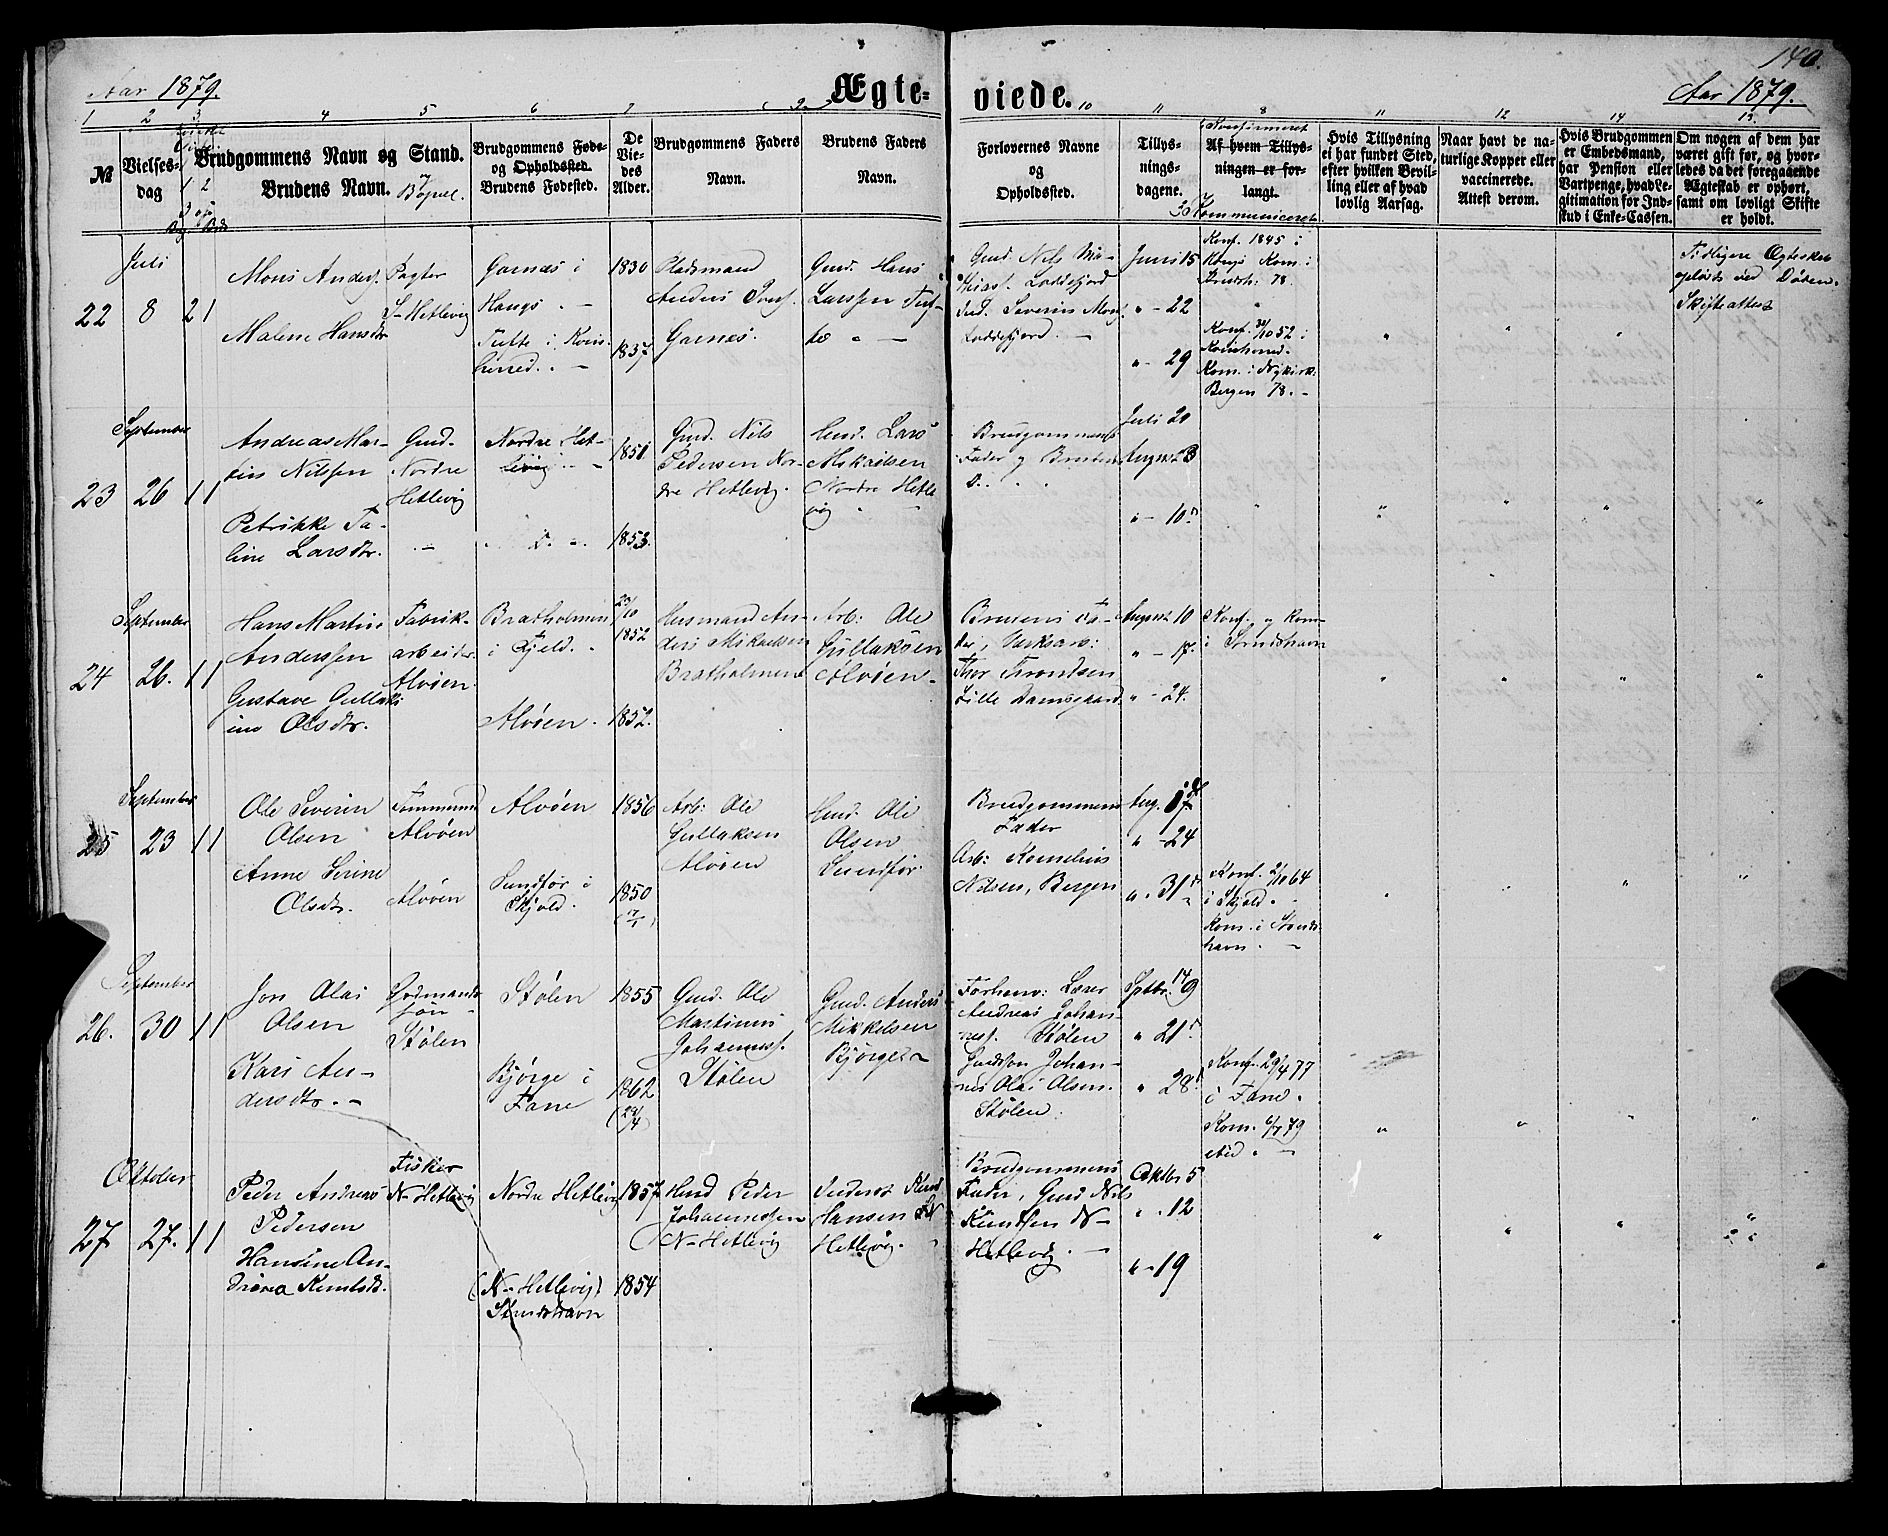 140.
Aar 1879.
Ægte-
viede.
Aar 1879.
1 2 3 4 5 6 7 9 10 11 8 11 12 14 13
№
Vielses-
dag
Brudgommens Navn og Stand.
Brudens Navn.
Brudgommens Føde-
og Opholdssted.
Brudens Fødested.
De
Vie-
des
Alder.
Brudgommens Faders
Navn.
Brudens Faders
Navn.
Forlovernes Navne
og
Opholdssted.
Tillys-
nings-
dagene.
Konfirmeret
Af hvem Tillys-
ningen er for-
langt.
Kommuniceret
Hvis Tillysning
ei har fundet Sted,
efter hvilken Bevil-
ling eller af hvad
lovlig Aarsag.
Naar havt de na-
turlige Kopper eller
vaccinerede.
Attest derom.
Hvis Brudgommen
er Embedsmand,
har Pension eller
Vartpenge, hvad Le-
gitimation for Ind-
skud i Enke-Cassen.
Om nogen af dem har
været gift før, og hvor-
ledes da det foregaaende
Ægteskab er ophørt,
samt om lovligt Skifte
er holdt.
Juli
22
8
2 1
Mons Anders.
Malene Hansdtr
Pagter
S-Hetlevig
Garnæs i
Haugs
Tufte i Kvins-
herred.
1830
1837
Pladsmand
Anders Jons.
Garnæs.
Gmd. Hans
Larssen Tuf-
te
Gmd. Nils Ma-
thias. Loddefjord
Gmd. Severin Mons.
Loddefjord.
Juni 15
" - 22
" - 29
Konf. 1845 i
Haugs Kom. i
Konf. 52 i
Kvinherred.
Kom. i Nykirk.
Bergen 78.
Tidligere Ægteskab
opløst ved Døden.
Skifteattest
September
23
26
1 1
Andreas Mar-
tin Nilssen
Petrikke Ta-
line Larsdtr.
Gmd.
Nordre
Hetlevig
Nordre Het-
levig
D.
1851
1853.
Gmd. Nils
Pedersen Nor-
dre Hetlevig.
Hmd. Lars
Mikkelsen
Nordre Hetle
vig
Brudgommens
Fader og Brudens
D.
Juli 20
August 3
" - 10
September
24
26.
1 1
Hans Martin
Anderssen
Gustave Gullaks
ine Olsdtr.
Fabrik-
arbeider
Alvøen.
Bratholmen
i Fjeld.
Alvøen.
23/10
1852
1852.
Husmand An-
ders Mikkelsen
Bratholmen
Arb: Ole
Gullaksen
Alvøen.
Brudens Fa-
der,
Thor Trondsen
Lille Damsgaard
August 10
" - 17.
" - 24.
Konf. og Kom-
i Strudshavn
September
25
23
1 1
Ole Severin
Olsen
Anne Serine
Olsdtr.
Tømmermd
Alvøen
Alvøen
Alvøen
Sundfør i
Skjold.
1856
1850
Arb: Ole
Gullaksen
Alvøen
Hmd. Ole
Olsen
Sundfør
Brudgommens
Fader
Arb: Kornelius
Nilsen, Bergen
Aug. 17
" - 24
" - 31
Konf. 2/10 64
i Skjold.
Kom. i Struds
havn.
September
26.
30
1 1
Jon Olai
Olsen
Kari An-
dersdtr.
Gaardmands
søn
Stølen
Stølen
Bjørge i
Fane
1855
1862
(29/4)
Gmd. Ole
Martinus
Johanness.
Stølen
Gmd. Anders
Mikkelsen
Bjørge
Forhenv: Lærer
Andreas Johan-
ness. Stølen
Gaardsøn Johan-
nes Olai Olsen.
Stølen.
Sptbr. 14
" 21
" 28
Konf. 29/4 77
i Fane.
Kom. 6/7 79
sted
Oktober
27
27.
1 1
Peder Andreas
Pedersen
Hansine An-
drea Knudsdtr.
Fisker
N-Hetlevig
Nordre Hetlevig
(N-Hetlevig)
Strudshavn
1857
1854
Hmd Peder
Johannessen
N-Hetlevig
Inderst Knud
Hansen N
Hetlevig.
Brudgommens
Fader, Gmd Nils
Knudsen N-
Hetlevig.
Oktbr 5
" - 12
" - 19